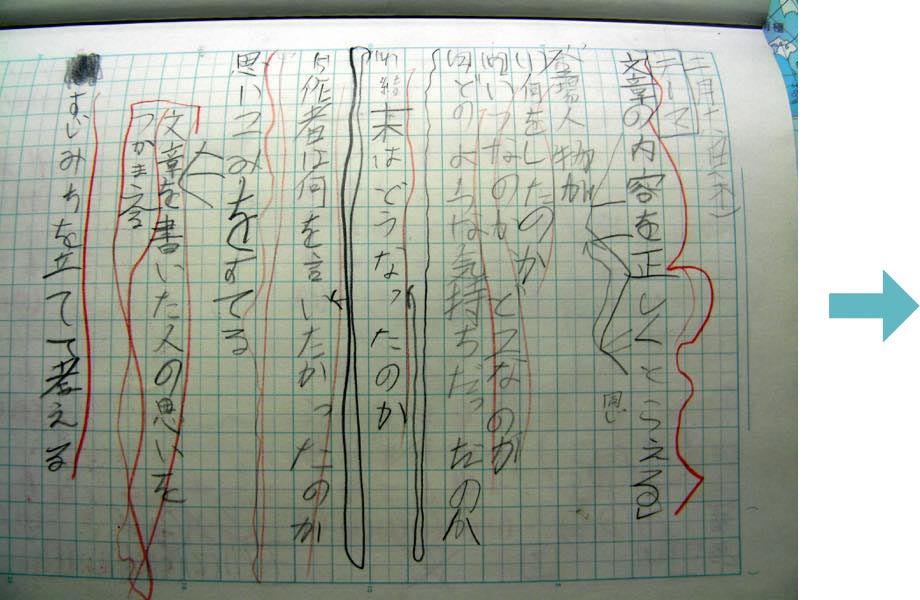 文章の内容を正しくとらえる
登場人物が
(1)何をしたのか
(2)いつなのか どこなのか
(3)どのような気持ちだったのか
(4)結末はどうなったのか
(5)作者は何を言いたかったのか
思いこみをすてる
文章を書いた人の思いを
つかまえる
すじみちを立てて考える